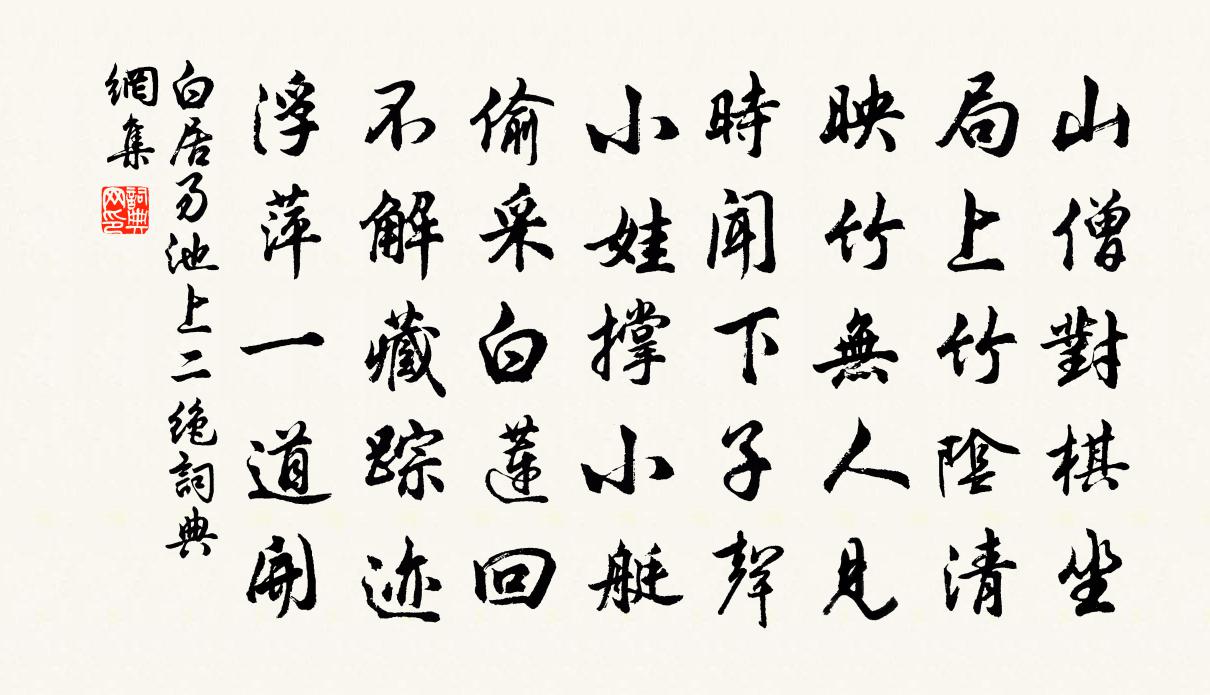 山僧對棋坐
局上竹陰清
映竹無人見
時聞下子聲
小娃撐小艇
偷采白蓮回
不解藏踪迹
浮萍一道開
白居易池上二絶詞典
網集
詞典
网印